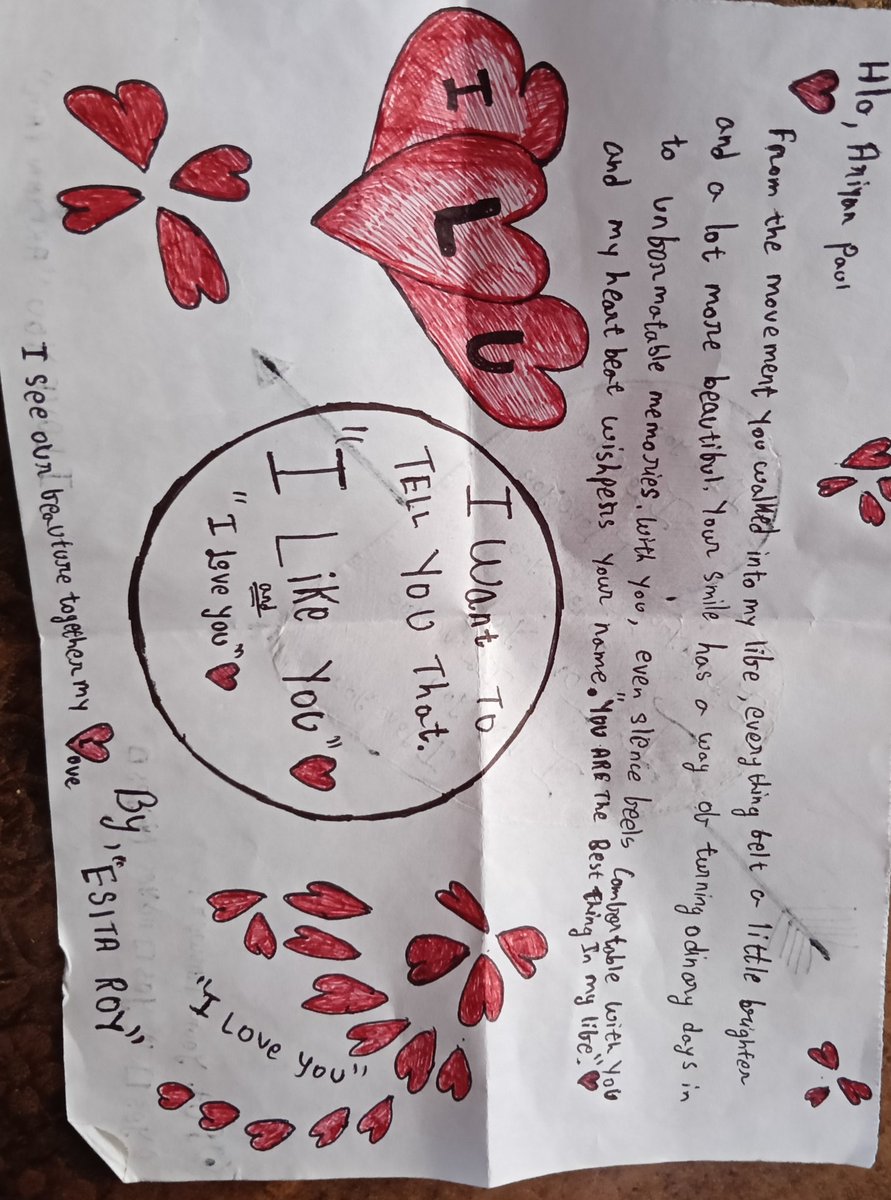 Hlo, Ariyan Paul
From the movement you walked into my libe, everything belt a little brighter
and a lot more beautibul. Your smile has a way ob turning odinary days in
to unbormatable memories. with you, even slence beels Combortable with you
and my heart beat wishpers your name. "You ARE The Best thing In my libe."
I L U
I want To
TELL YOU That.
"I Like You"
and
"I love you"
"I LOVE YOU"
I see our beauture together my ove
By, "ESITA ROY"